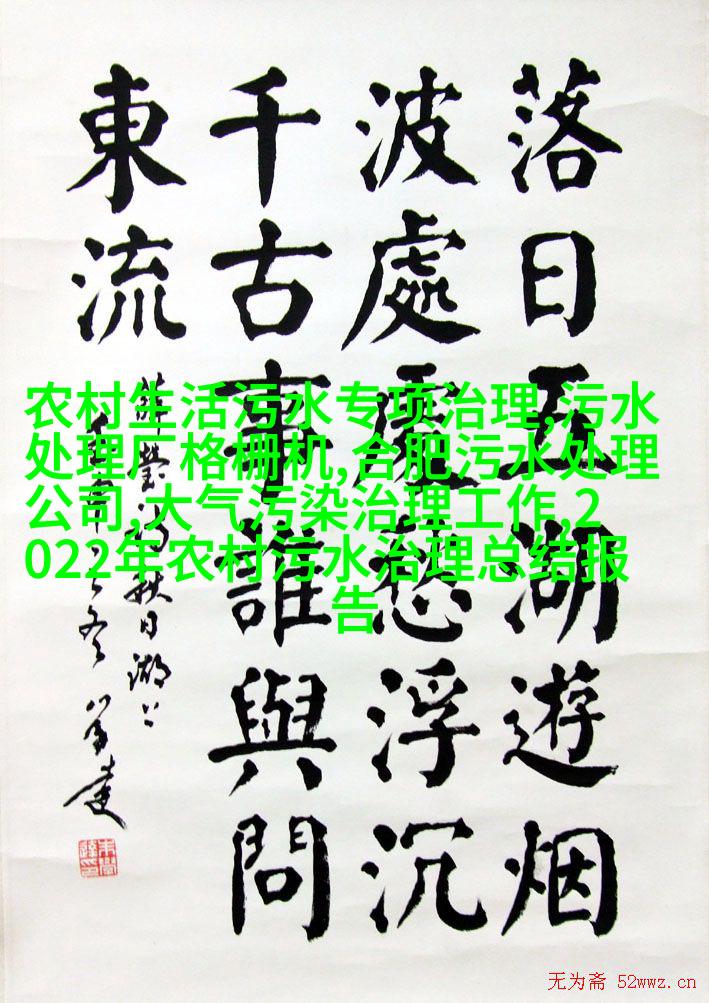 落日五湖遊烟
波處處愁浮沉
千古事誰與問
東流
薛瑩 秋日湖上
农村生活污水专项治理,污水
处理厂格栅机,合肥污水处理
公司,大气污染治理工作,2
022年农村污水治理总结报
告
无为斋 52wwz.cn